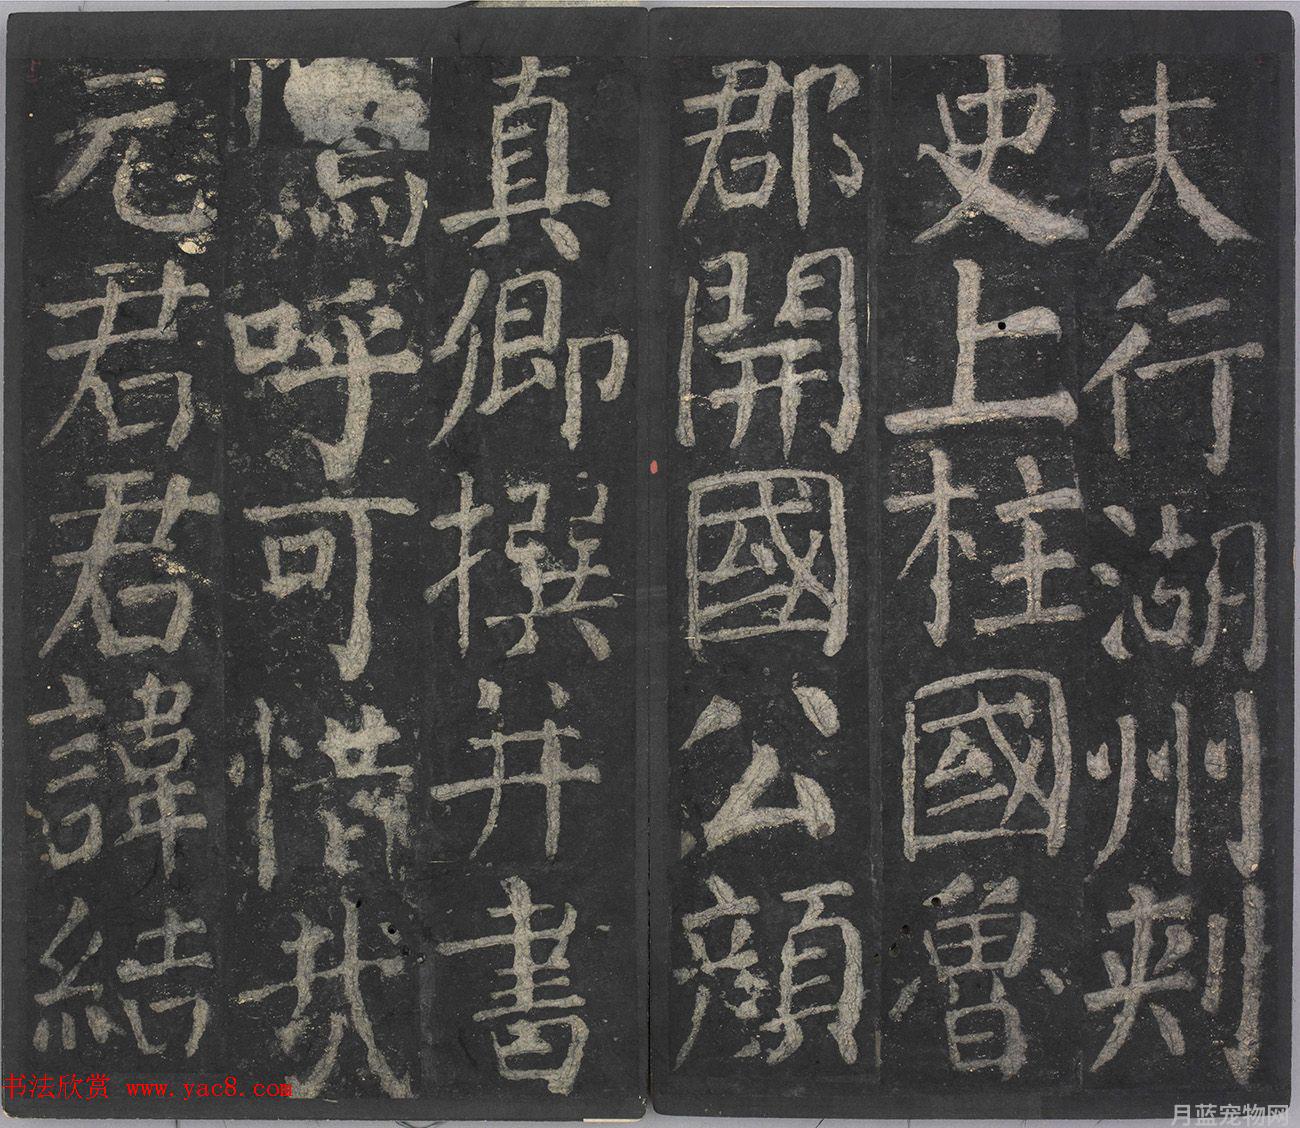 夫行湖州刺
史上柱國魯
郡開國公顏
真卿撰并書
嗚呼可惜哉
元君君諱結
书法欣赏 www.yac8.com
月蓝宠物网